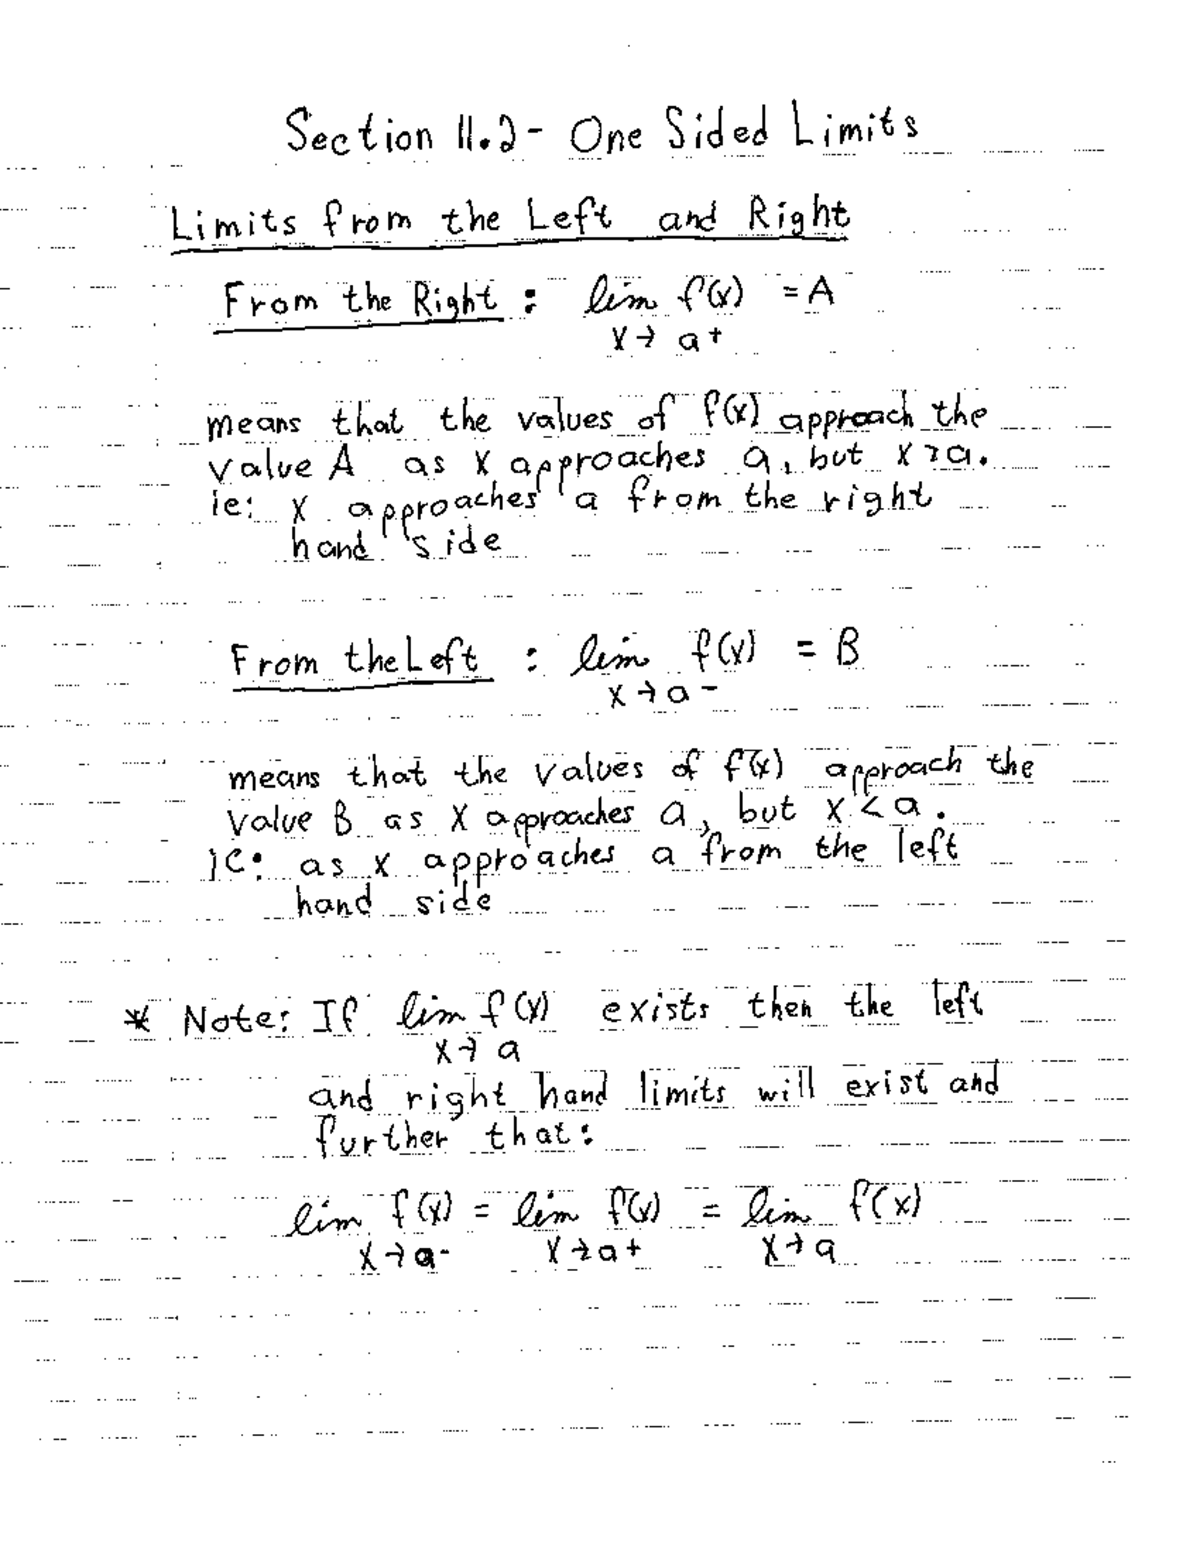 Section 11.2 - One Sided Limits
Limits from the Left and Right
From the Right : lim f(x) = A
x → a+
means that the values of f(x) approach the
value A as x approaches a, but x > a.
ie: x approaches a from the right
hand side
From the Left : lim f(x) = B
x → a-
means that the values of f(x) approach the
value B as x approaches a, but x < a.
ie: as x approaches a from the left
hand side
* Note: If lim f(x) exists then the left
x → a
and right hand limits will exist and
further that:
lim f(x) = lim f(x) = lim f(x)
x → a- x → a+ x → a